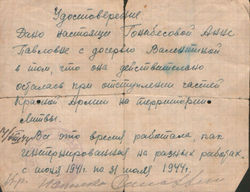 Удостоверение
Дано настоящее Гонабесовой Анне
Павловне с дочерью Валентиной
в том, что она действительно
осталась при отступлении частей
Красной Армии на территории
Литвы.
Все это время работала как
интернированная на разных работах,
с июня 1941 по 31 июля 1944.